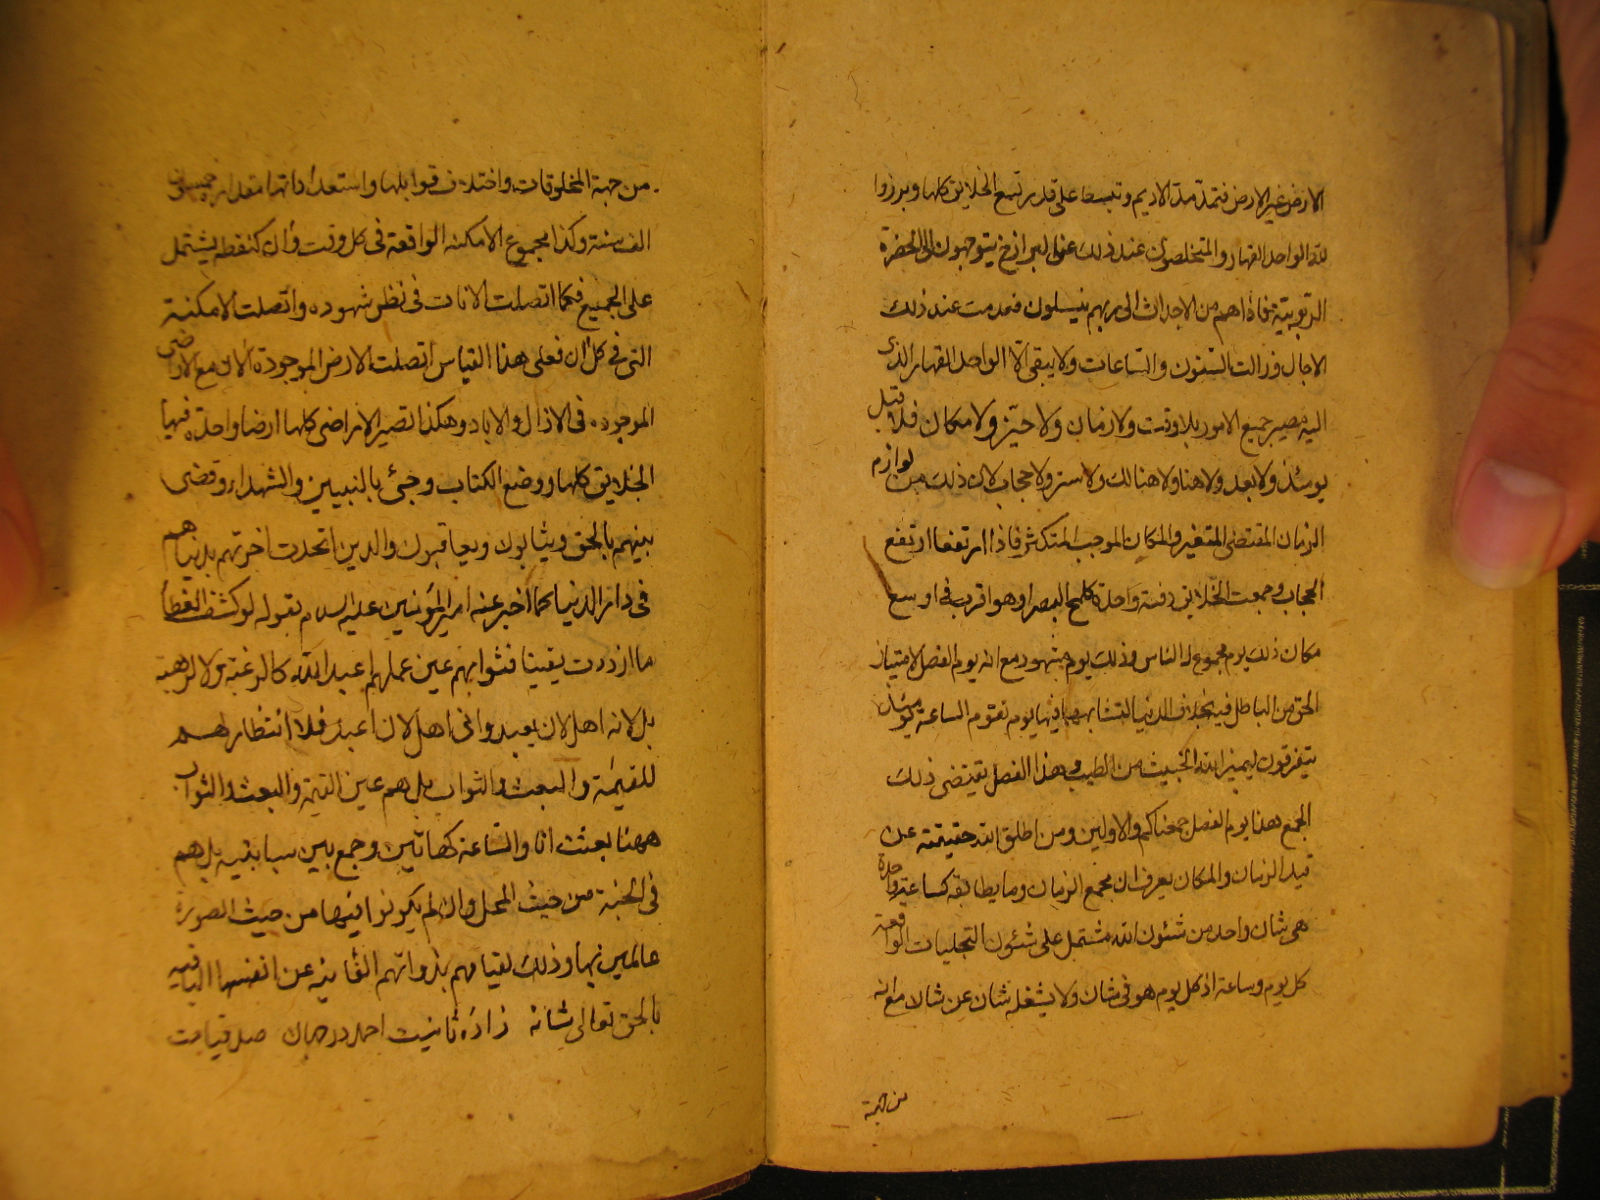 الارض غير الارض فتمد مد الاديم وتبسط على قدر تسع الخلايق كلها وبرزوا
لله الواحد القهار والمتخلصون عند ذلك عن البرازخ يتوجهون الى الحضرة
الربوبية فاذا هم من الاجداث الى ربهم ينسلون فعدمت عند ذلك
الاجال وزالت السنون والساعات ولا يبقى الا الواحد القهار الذى
اليه مصير جميع الامور بلا وقت ولا زمان ولا حيز ولا مكان فلا قبل
يومئذ ولا بعد ولا هنا ولا هنالك ولا ستر ولا حجاب لان ذلك من لوازم
الزمان المقتضى للتغير والمكان الموجب للتكثر فاذا ارتفعا ارتفع
الحجاب وجمعت الخلايق دفعة واحدة كلمح البصر او هو اقرب فى اوسع
مكان ذلك يوم مجموع له الناس وذلك يوم مشهود مع انه يوم الفصل لامتياز
الحق من الباطل فيه بخلاف الدنيا لتشابههما فيها يوم تقوم الساعة يومئذ
يتفرقون ليميز الله الخبيث من الطيب وهذا الفصل يقتضى ذلك
الجمع هذا يوم الفصل جمعناكم والاولين ومن اطلق الله حقيقته عن
قيد الزمان والمكان يعرف ان مجمع الزمان وما يطابقه كساعة واحدة
هى شان واحد من شئون الله مشتمل على شئون التجليات الواقعة
كل يوم وساعة اذ كل يوم هو فى شان ولا يشغله شان عن شان مع انه
من جهة
من جهة المخلوقات واختلاف قوابلها واستعداداتها مقداره خمسين
الف سنة وكذا مجموع الامكنه الواقعة فى كل وقت وان كنقطه يشتمل
على الجميع فكما اتصلت الانات فى نظر شهوده واتصلت الامكنة
التى فى كل ان فعلى هذا القياس اتصلت الارض الموجودة الان مع الاراضى
الموجوده فى الازال والاباد وهكذا تصير الاراضى كلها ارضا واحدة فيها
الخلايق كلها ووضع الكتاب وجئ بالنبيين والشهداء وقضى
بينهم بالحق ويثابون ويعاقبون والذين اتحدت اخرتهم بدنياهم
فى دار الدنيا كما اخبر عنه امير المؤمنين عليه السلام بقوله لو كشف الغطاء
ما ازددت يقينا فثوابهم عين عملهم اعبد الله كا لرغبة ولا لرهبة
بل لانه اهل لان يعبد وانى اهل لان اعبد فلا انتظار لهم
للقيمة والبعث والثواب بل هم عين القيمة والبعث والثواب
ههنا بعثت انا والساعة كهاتين وجمع بين سبابتيه بل هم
فى الجنة من حيث المحل وان لم يكونوا فيها من حيث الصورة
عالمين بها وذلك لقيامهم بذواتهم الفانية عن انفسها الباقية
بالحق تعالى شانه زاده ثانيست احمد در جهان صد قيامت